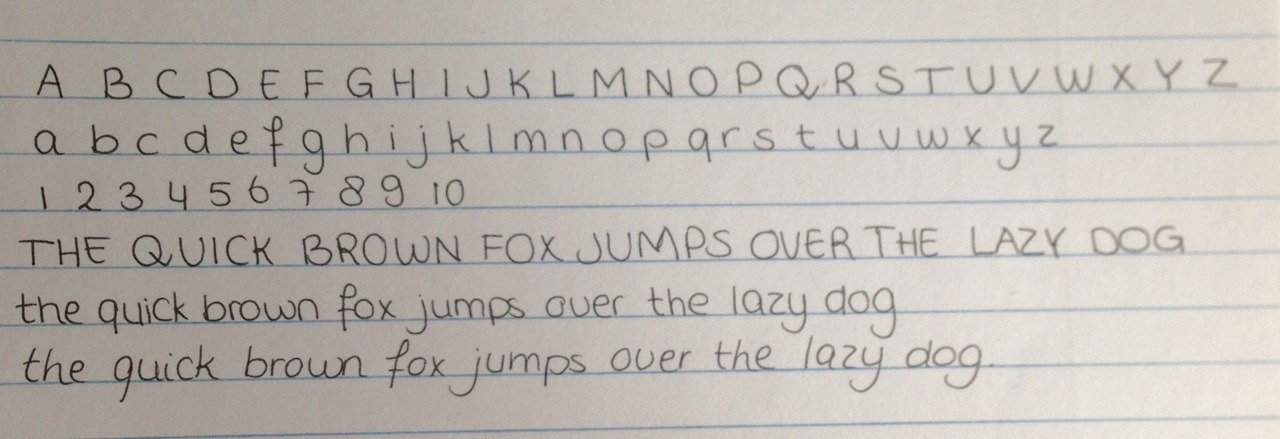 A B C D E F G H I J K L M N O P Q R S T U V W X Y Z
a b c d e f g h i j k l m n o p q r s t u v w x y z
1 2 3 4 5 6 7 8 9 10
THE QUICK BROWN FOX JUMPS OVER THE LAZY DOG
the quick brown fox jumps over the lazy dog
the quick brown fox jumps over the lazy dog.